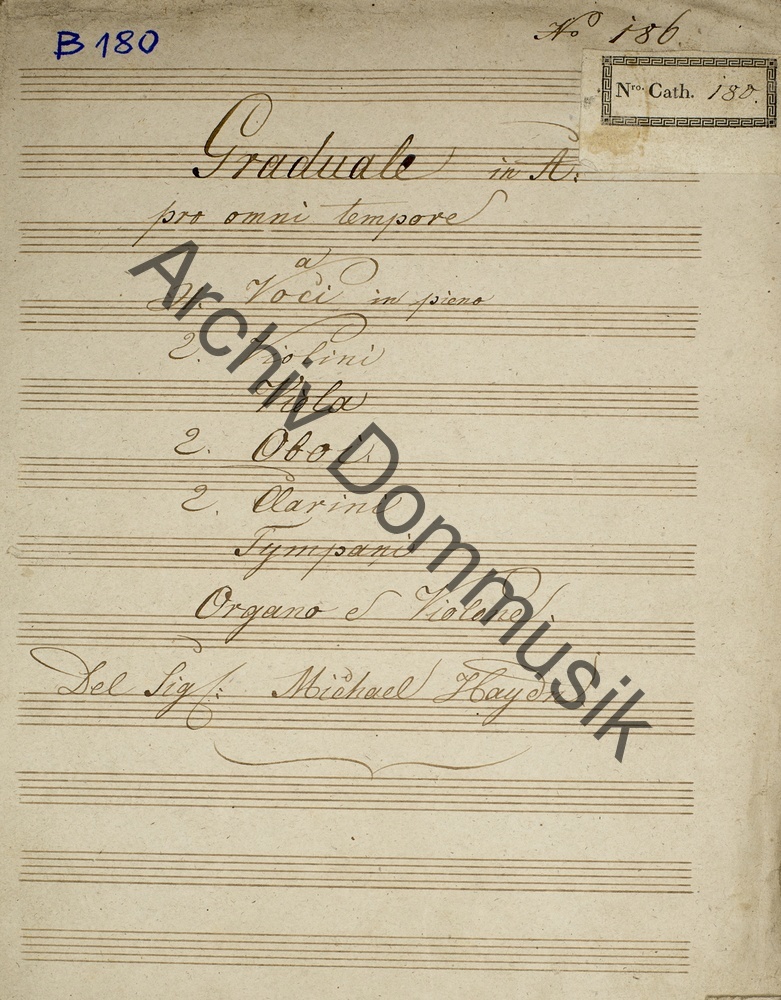 B 180
No 186.
Nro. Cath. 180.
Graduale in A.
pro omni tempore
a
4. Voci in pieno
2. Violini
Viola
2. Oboi.
2. Clarini
Tympani
Organo e Violone.
Del Sigr: Michael Haydn
Archiv Dommusik